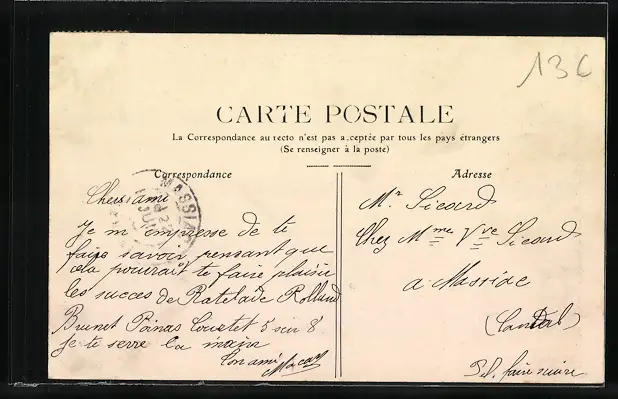 13C
CARTE POSTALE
La Correspondance au recto n'est pas acceptée par tous les pays étrangers
(Se renseigner à la poste)
Correspondance
Adresse
MASSIAC
Cher ami
Je m'empresse de te
faire savoir pensant que
cela pourrait te faire plaisir
les succes de Ratelade Rolland
Brunet Courtet 5 sur 8
je te serre la main
Ton ami
Mr Sicard
Chez Mme Vve Sicard
a Massiac
(Cantal)
faire suivre